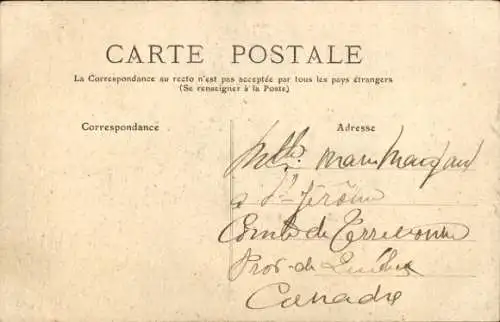 CARTE POSTALE
La Correspondance au recto n'est pas acceptée par tous les pays étrangers
(Se renseigner à la Poste)
Correspondance
Adresse
Melle
à St-Jérôme
Comté de Terrebonne
Prov. de Québec
Canada